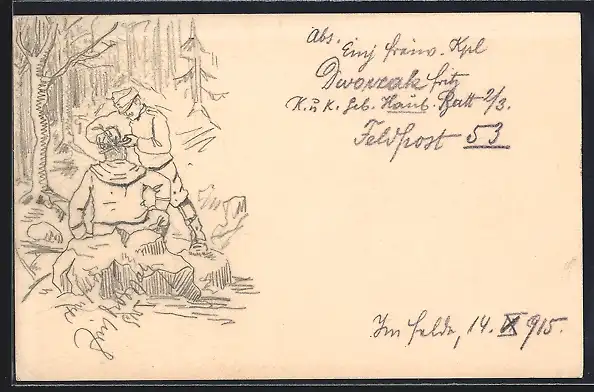 Abs.
Einj freiw. Kpl
Dworzak Fritz
K.u.K. Geb. Haub. Batt 2/3.
Feldpost 53
Im Felde, 14. IX 915.